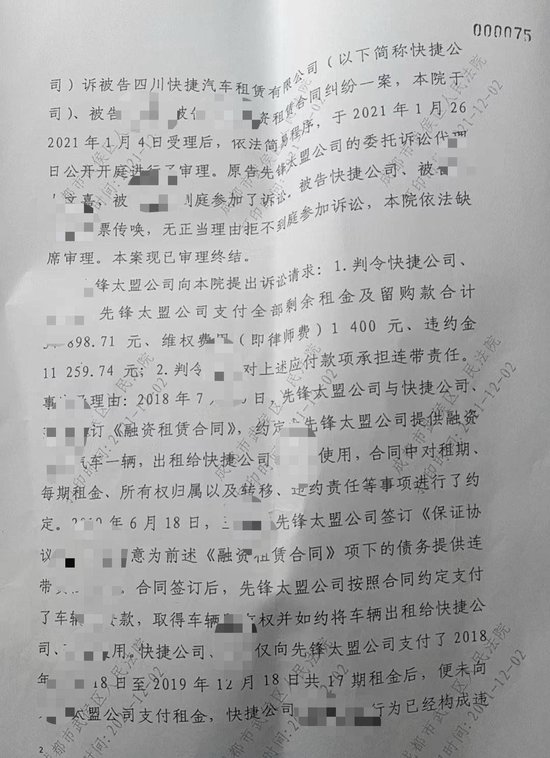 000075
司）诉被告四川快捷汽车租赁有限公司（以下简称快捷公
司）、被告 资租赁合同纠纷一案，本院于
2021年1月4日受理后，依法简易程序，于2021年1月26
日公开开庭进行了审理。原告先锋太盟公司的委托诉讼代理
到庭参加了诉讼，被告快捷公司、被
票传唤，无正当理由拒不到庭参加诉讼，本院依法缺
席审理。本案现已审理终结。
锋太盟公司向本院提出诉讼请求：1.判令快捷公司、
先锋太盟公司支付全部剩余租金及留购款合计
698.71元、维权费用（即律师费）1 400元、违约金
11 259.74元；2.判令 对上述应付款项承担连带责任。
事 理由：2018年7 日，先锋太盟公司与快捷公司、
订《融资租赁合同》，约定 先锋太盟公司提供融资
汽车一辆，出租给快捷公司 使用，合同中对租期、
每期租金、所有权归属以及转移、违约责任等事项进行了约
定。 年6月18日， 先锋太盟公司签订《保证协
议 意为前述《融资租赁合同》项下的债务提供连
带 。合同签订后，先锋太盟公司按照合同约定支付
了车辆 款，取得车辆 权并如约将车辆出租给快捷公
司、 用。快捷公司、 仅向先锋太盟公司支付了2018
年 18日至2019年12月18日共17期租金后，便未向
盟公司支付租金，快捷公司 行为已经构成违
2
成都市武侯区人民法院
打印时间：2021-12-02